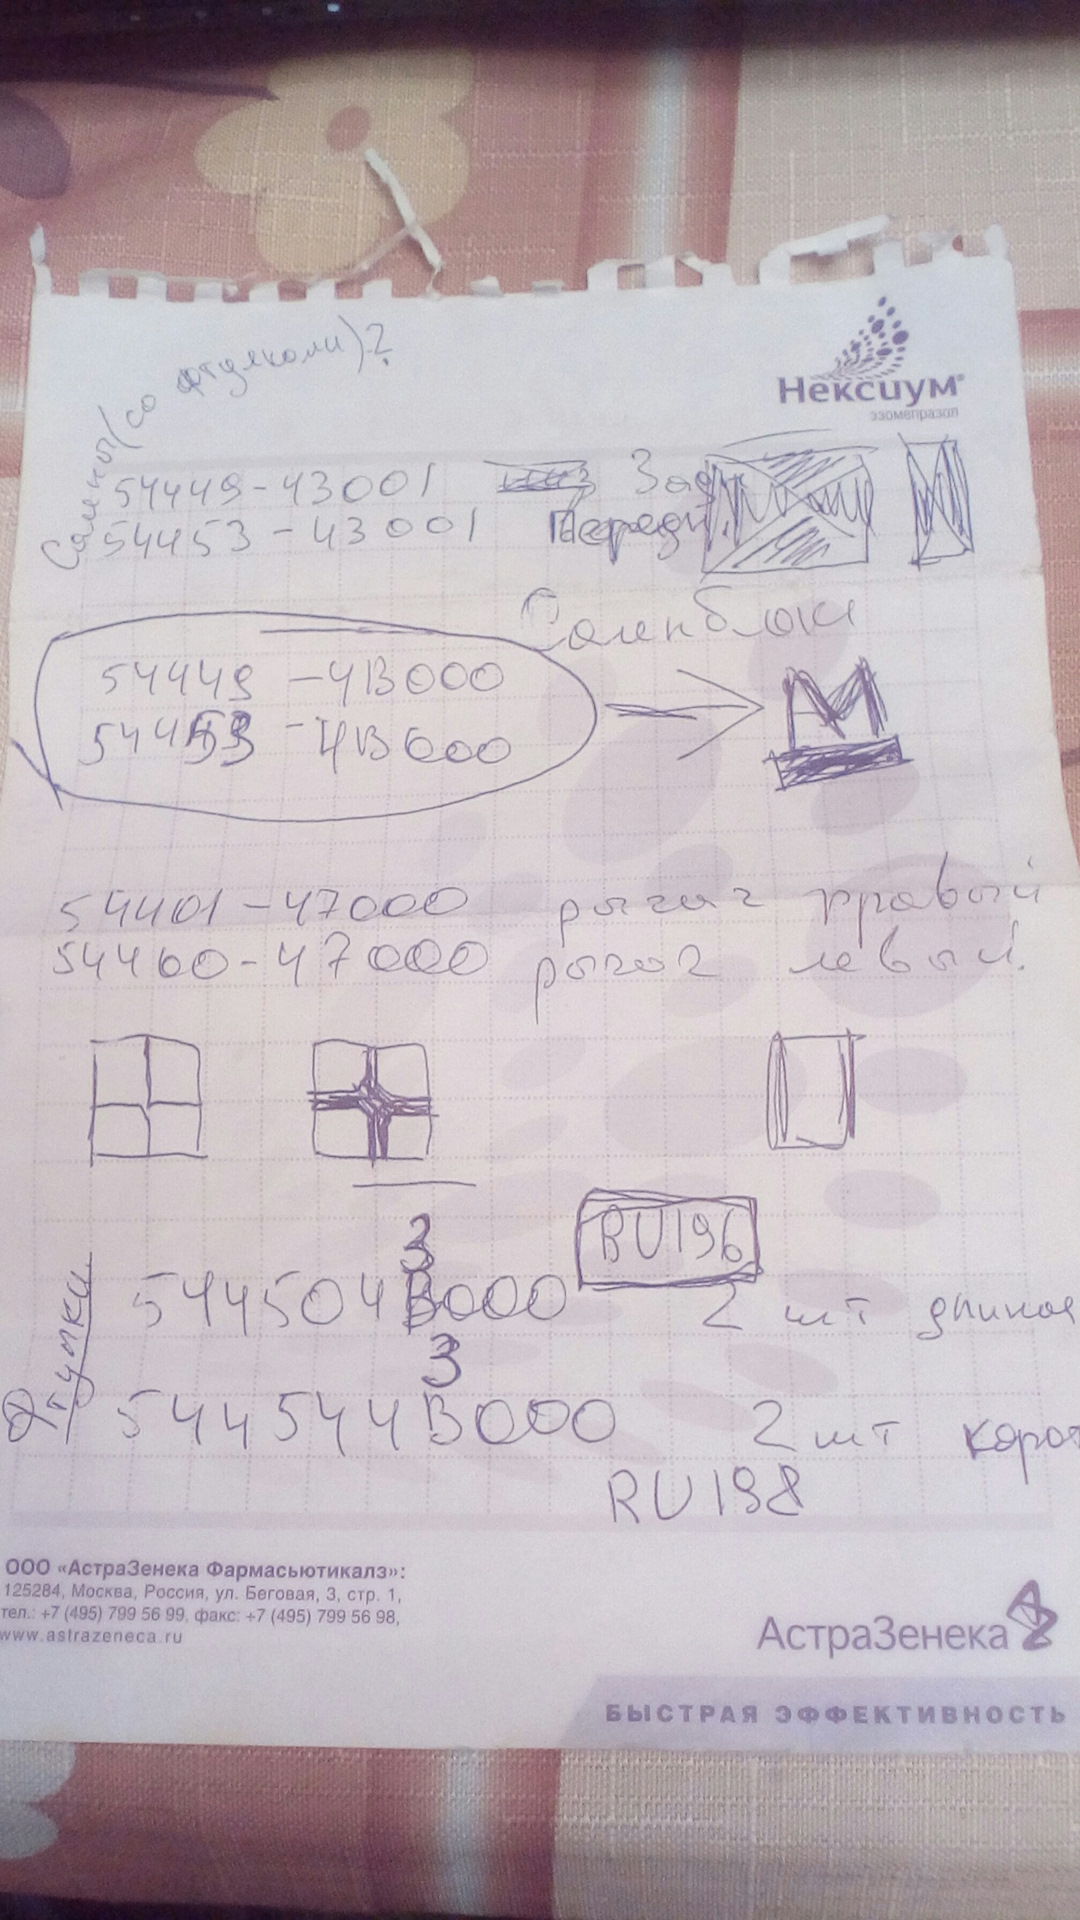 Нексиум®
эзомепразол
Салены (со втулками)?
54449-43001 Зад
54453-43001 Передн.
Саленблоки
54449-4B000
54453-4B000
M
54401-47000 рычаг правый
54460-47000 рычаг левый.
RU196
3
544504B000 2 шт длиной
3
544544B000 2 шт корот
Втулки
RU198
ООО «АстраЗенека Фармасьютикалз»:
125284, Москва, Россия, ул. Беговая, 3, стр. 1,
тел.: +7 (495) 799 56 99, факс: +7 (495) 799 56 98,
www.astrazeneca.ru
АстраЗенека
БЫСТРАЯ ЭФФЕКТИВНОСТЬ